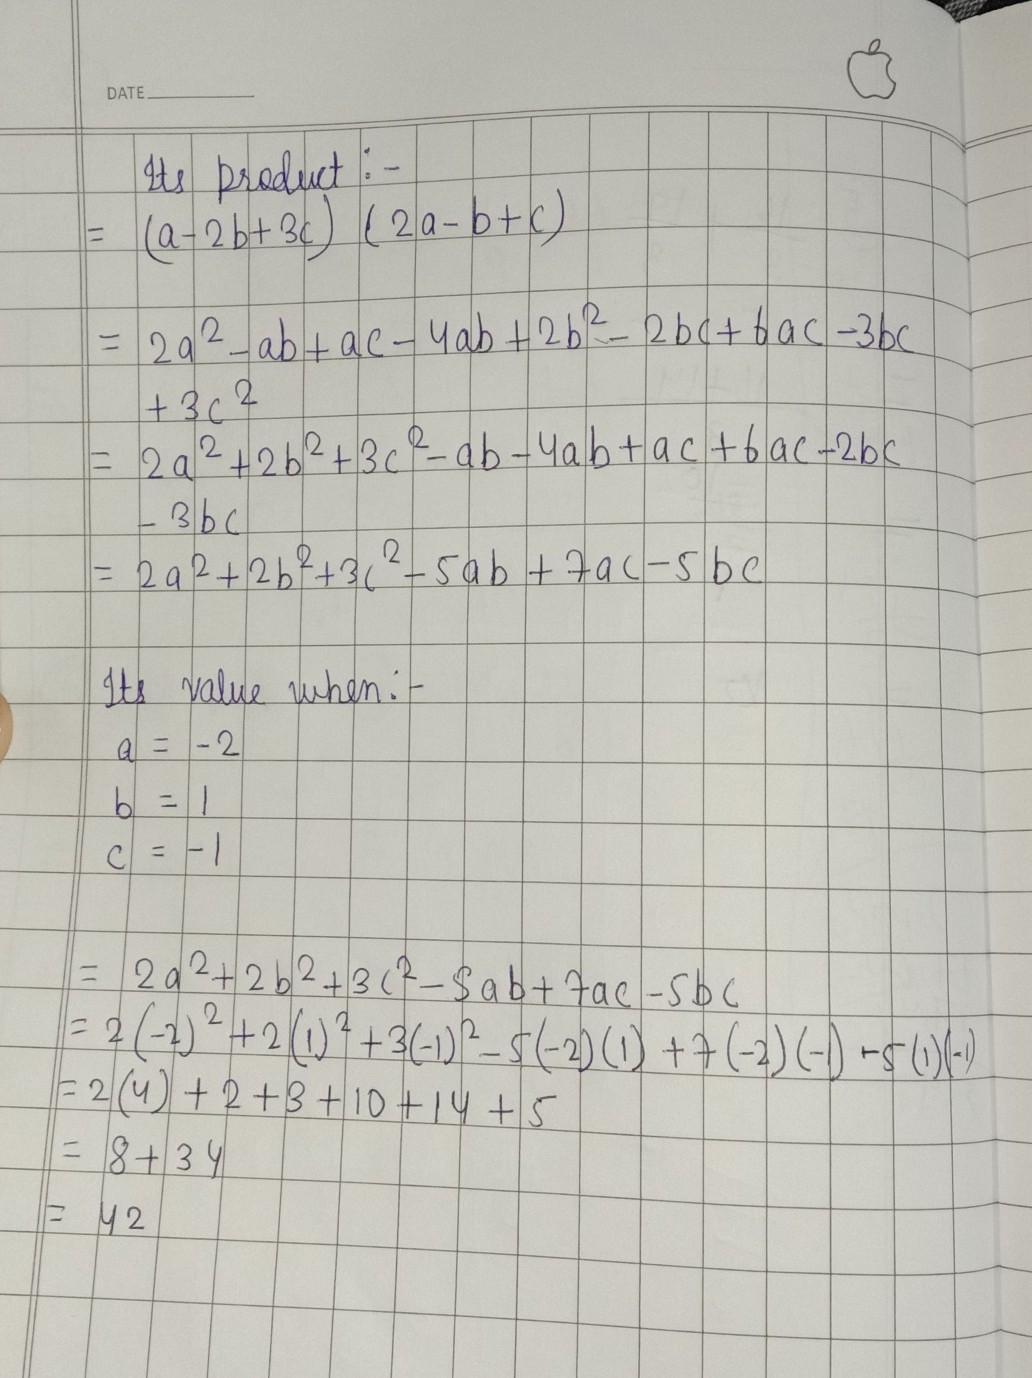 DATE
Its product :-
= (a-2b+3c) (2a-b+c)
= 2a²-ab+ac-4ab+2b²-2bc+6ac-3bc
+3c²
= 2a²+2b²+3c²-ab-4ab+ac+6ac-2bc
-3bc
= 2a²+2b²+3c²-5ab+7ac-5bc
Its value when :-
a = -2
b = 1
c = -1
= 2a²+2b²+3c²-5ab+7ac-5bc
= 2(-2)²+2(1)²+3(-1)²-5(-2)(1)+7(-2)(-1)-5(1)(-1)
= 2(4)+2+3+10+14+5
= 8+34
= 42